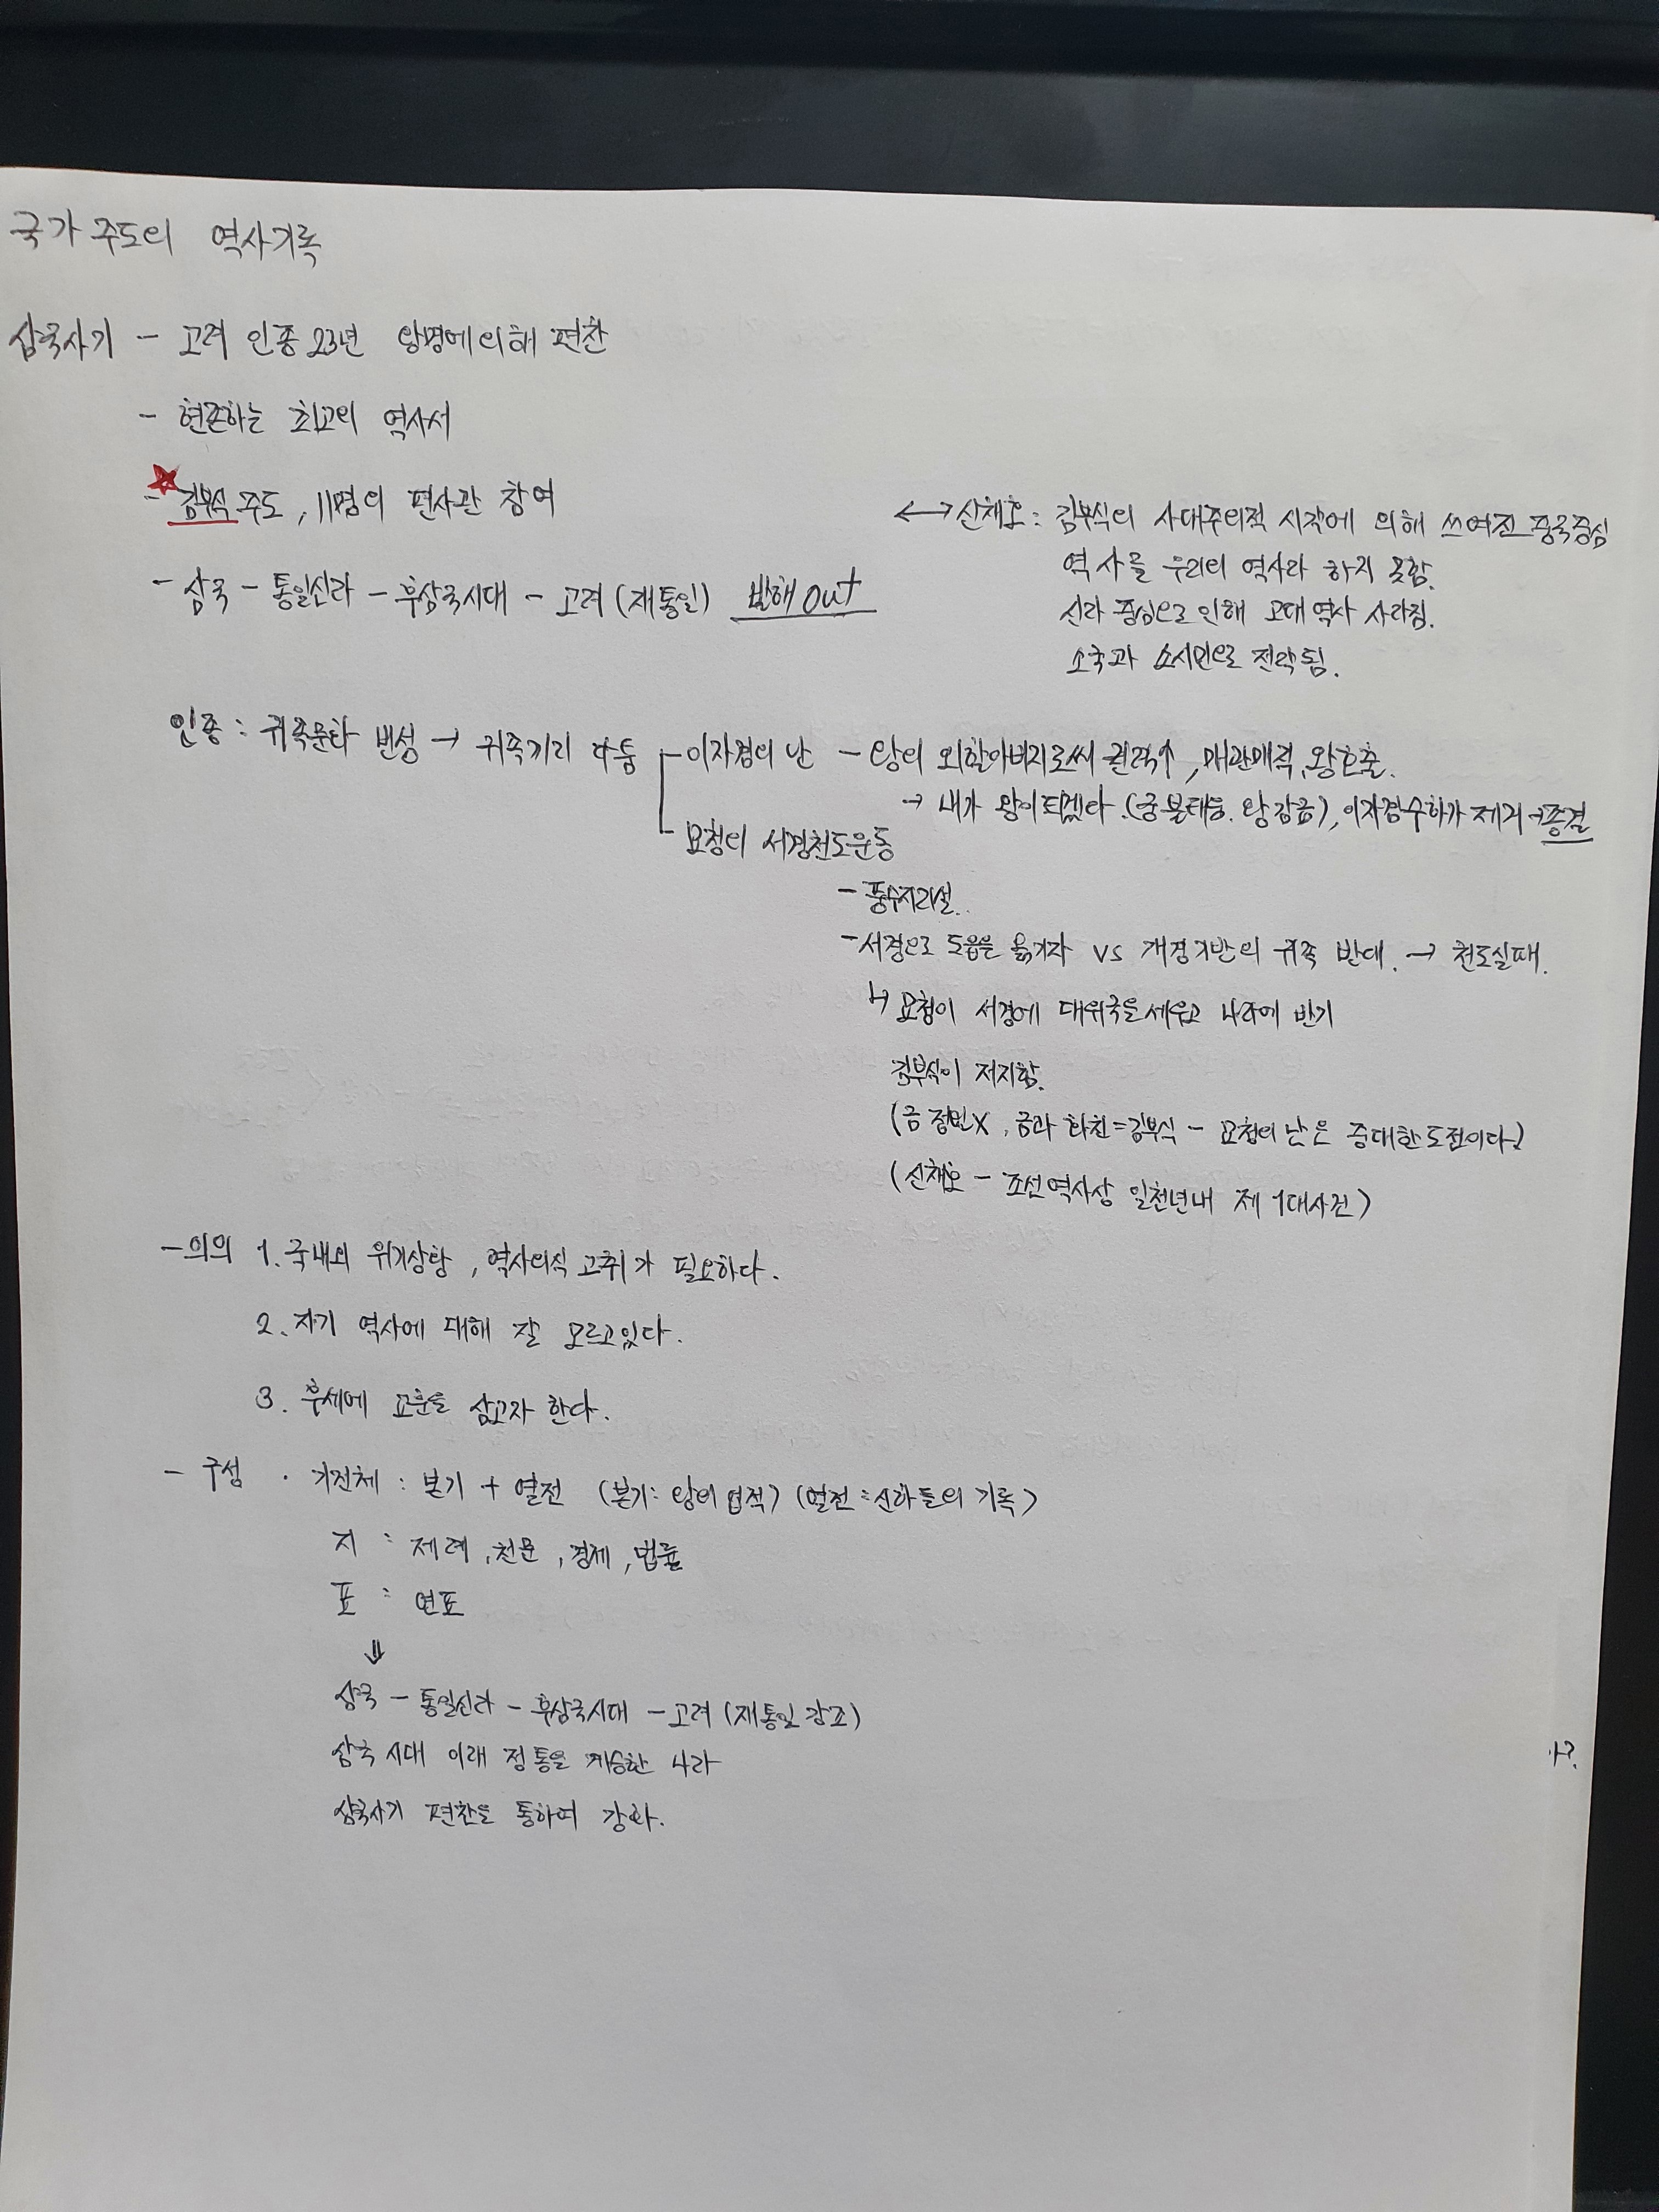 국가 주도의 역사기록
삼국사기 - 고려 인종 23년 왕명에 의해 편찬
- 현존하는 최고의 역사서
- 김부식 주도, 11명의 편사관 참여
- 삼국 - 통일신라 - 후삼국시대 - 고려 (재통일) 발해 out
↔ 신채호 : 김부식의 사대주의적 시각에 의해 쓰여진 중국중심
역사를 우리의 역사라 하지 못함.
신라 중심으로 인해 고대 역사 사라짐.
소국과 소시민으로 전락됨.
인종 : 귀족문화 번성 → 귀족끼리 다툼
이자겸의 난 - 왕의 외할아버지로써 권력↑, 매관매직, 왕호출.
→ 내가 왕이 되겠다. (궁 불태움. 왕 감금), 이자겸수하가 제거 → 종결
묘청의 서경천도운동
- 풍수지리설.
- 서경으로 도읍을 옮기자 vs 개경기반의 귀족 반대. → 천도실패.
↳ 묘청이 서경에 대위국을 세우고 나라에 반기
김부식이 저지함.
(금 정벌X, 금과 화친=김부식 - 묘청의 난은 중대한 도전이다)
(신채호 - 조선역사상 일천년내 제 1대사건)
- 의의 1. 국내외 위기상황, 역사의식 고취가 필요하다.
2. 자기 역사에 대해 잘 모르고있다.
3. 후세에 교훈을 삼고자 한다.
- 구성 · 기전체 : 본기 + 열전 (본기: 왕의 업적) (열전: 신하들의 기록)
지 : 제례, 천문, 경제, 법률
표 : 연표
⇓
삼국 - 통일신라 - 후삼국시대 - 고려 (재통일 강조)
삼국시대 이래 정통을 계승한 나라
삼국사기 편찬을 통하여 강화.